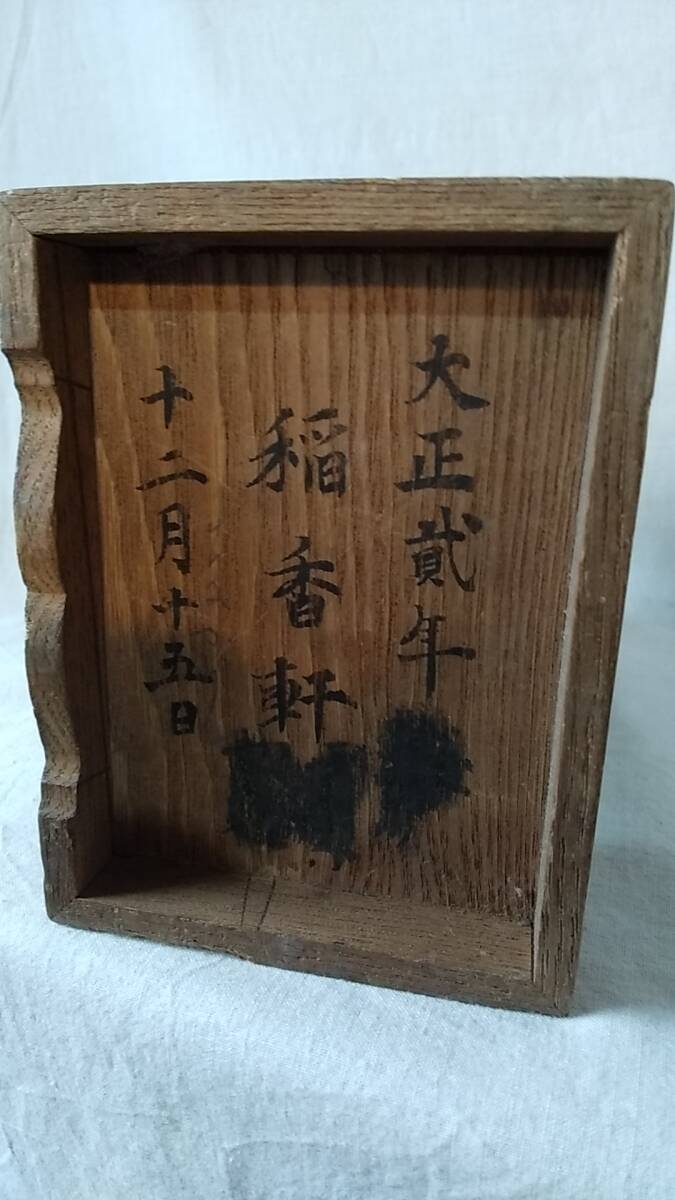 大正貳年
稲香軒
十二月十五日